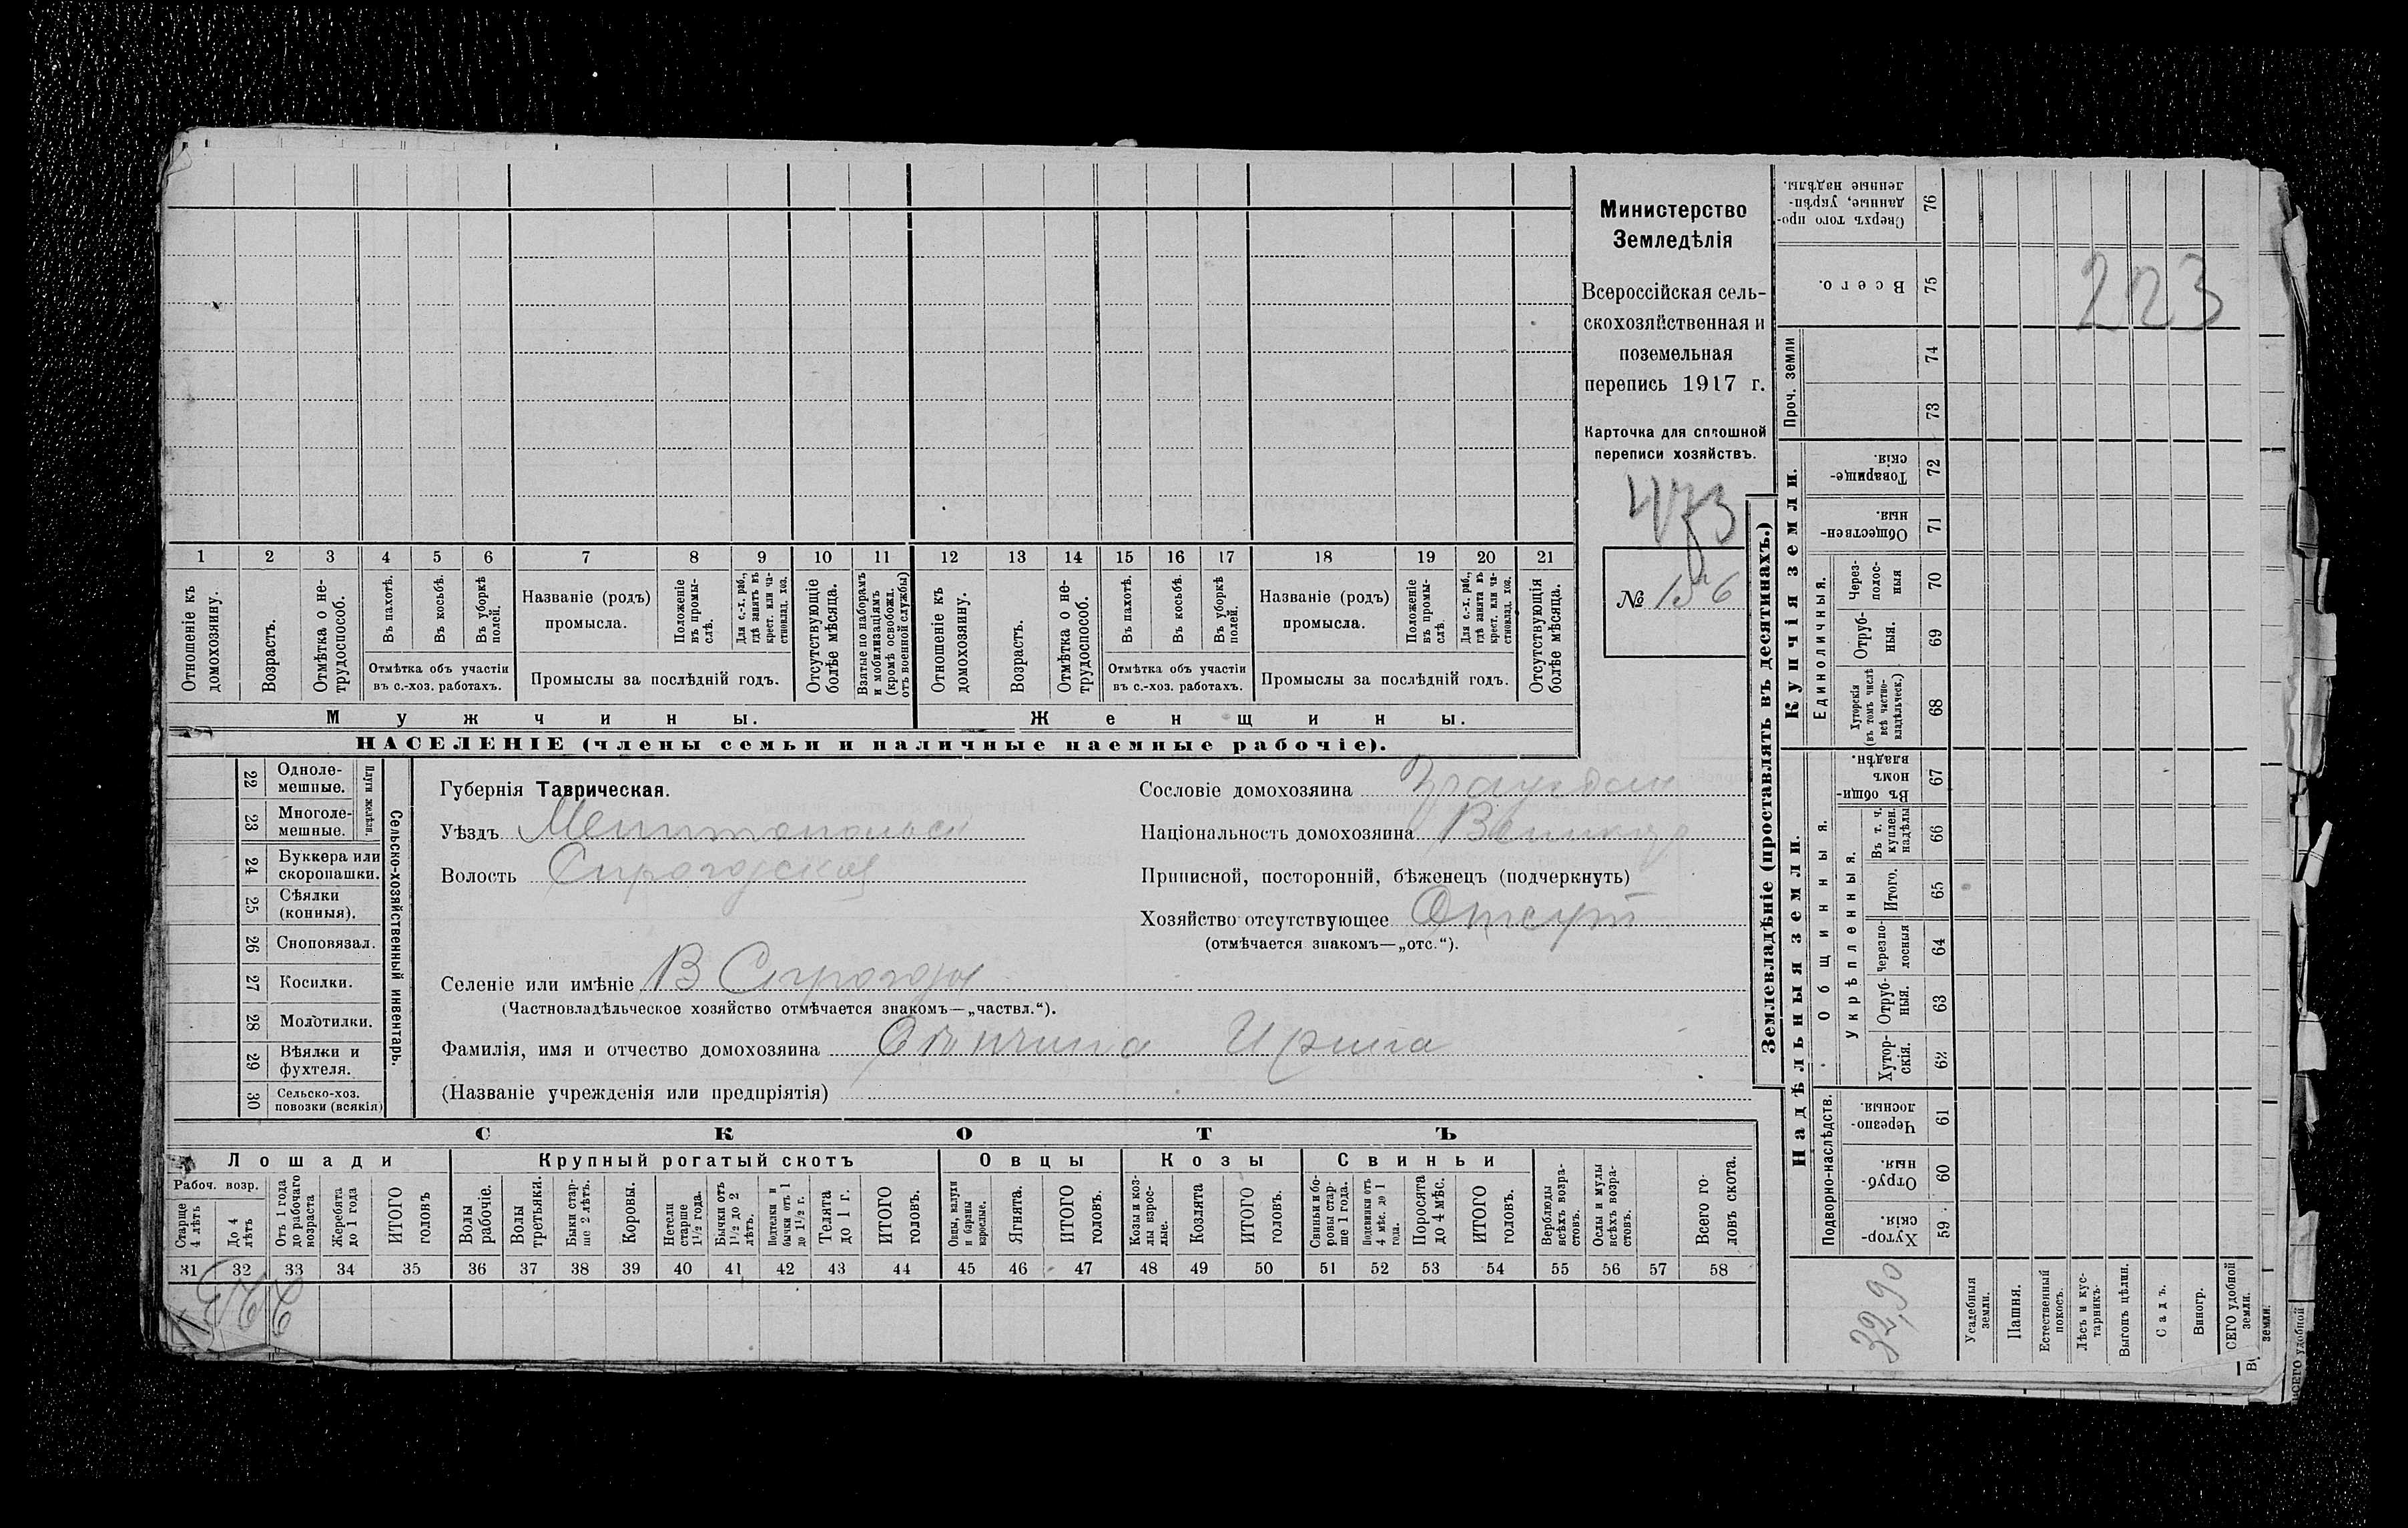 Министерство
Земледѣлія
Всероссійская сель-
скохозяйственная и
поземельная
перепись 1917 г.
Карточка для сплошной
переписи хозяйствъ.
473
№ 156
223
1 2 3 4 5 6 7 8 9 10 11 12 13 14 15 16 17 18 19 20 21
Отношеніе къ домохозяину.
Возрастъ.
Отмѣтка о не-трудоспособ.
Въ пахотѣ.
Въ косьбѣ.
Въ уборкѣ полей.
Отмѣтка объ участіи
въ с.-хоз. работахъ.
Названіе (родъ)
промысла.
Положеніе въ промы-слѣ.
Для с.-х. раб., гдѣ занятъ въ крест. или ча-стновлад. хоз.
Промыслы за послѣдній годъ.
Отсутствующіе болѣе мѣсяца.
Взятые по наборамъ и мобилизаціямъ (кромѣ освобожд. отъ военной службы)
Отношеніе къ домохозяину.
Возрастъ.
Отмѣтка о не-трудоспособ.
Въ пахотѣ.
Въ косьбѣ.
Въ уборкѣ полей.
Отмѣтка объ участіи
въ с.-хоз. работахъ.
Названіе (родъ)
промысла.
Положеніе въ промы-слѣ.
Для с.-х. раб., гдѣ занята въ крест. или ча-стновлад. хоз.
Промыслы за послѣдній годъ.
Отсутствующія болѣе мѣсяца.
Мужчины.
Женщины.
НАСЕЛЕНІЕ (члены семьи и наличные наемные рабочіе).
22 Одноле-мешные.
23 Многоле-мешные.
Плуги желѣзн.
24 Буккера или скоропашки.
25 Сѣялки (конныя).
26 Сноповязал.
27 Косилки.
28 Молотилки.
29 Вѣялки и фухтеля.
30 Сельско-хоз. повозки (всякія)
Сельско-хозяйственный инвентарь.
Губернія Таврическая.
Уѣздъ Мелитопольск
Волость Сирогозская
Сословіе домохозяина Граждан
Національность домохозяина
Приписной, посторонній, бѣженецъ (подчеркнуть)
Хозяйство отсутствующее Отсут
(отмѣчается знакомъ—„отс.“).
Селеніе или имѣніе В Сирогозы
(Частновладѣльческое хозяйство отмѣчается знакомъ—„частвл.“).
Фамилія, имя и отчество домохозяина Ирина
(Названіе учрежденія или предпріятія)
СКОТЪ
Лошади
Крупный рогатый скотъ
Овцы
Козы
Свиньи
Рабоч. возр.
Старше 4 лѣтъ
До 4 лѣтъ
Отъ 1 года до рабочаго возраста
Жеребята до 1 года
ИТОГО головъ
Волы рабочіе.
Волы третьяки.
Быки стар-ше 2 лѣтъ.
Коровы.
Нетели старше 1½ года.
Бычки отъ 1½ до 2 лѣтъ.
Подтелки и бычки отъ 1 до 1½ г.
Телята до 1 г.
ИТОГО головъ.
Овцы, валухи и бараны взрослые.
Ягнята.
ИТОГО головъ.
Козы и коз-лы взрос-лые.
Козлята
ИТОГО головъ.
Свиньи и бо-ровы стар-ше 1 года.
Подсвинки отъ 4 мѣс. до 1 года.
Поросята до 4 мѣс.
ИТОГО головъ.
Верблюды всѣхъ возра-стовъ.
Ослы и мулы всѣхъ возра-стовъ.
Всего го-ловъ скота.
31 32 33 34 35 36 37 38 39 40 41 42 43 44 45 46 47 48 49 50 51 52 53 54 55 56 57 58
Землевладѣніе (проставлять въ десятинахъ.)
Надѣльныя земли.
Купчія земли.
Проч. земли
Подворно-наслѣдств.
Общинныя.
Укрѣпленныя.
Единоличныя.
Сверхъ того про-данные, укрѣп-ленные надѣлы. 76
Всего. 75
74
73
Товарище-скія. 72
Обществен-ныя. 71
Через-полос-ныя 70
Отруб-ныя. 69
Хуторскія (въ томъ числѣ всѣ частно-владѣльческ.) 68
Въ общин-номъ владѣн. 67
Въ т. ч. куплен. надѣлы 66
Итого. 65
Черезпо-лосныя 64
Отруб-ныя. 63
Хутор-скія. 62
Черезпо-лосныя. 61
Отруб-ныя. 60
Хутор-скія. 59
32,90
Усадебныя земли.
Пашня.
Естественный покосъ.
Лѣсъ и кус-тарникъ.
Выгонъ цѣлин.
Садъ.
Виногр.
СЕГО удобной земли.